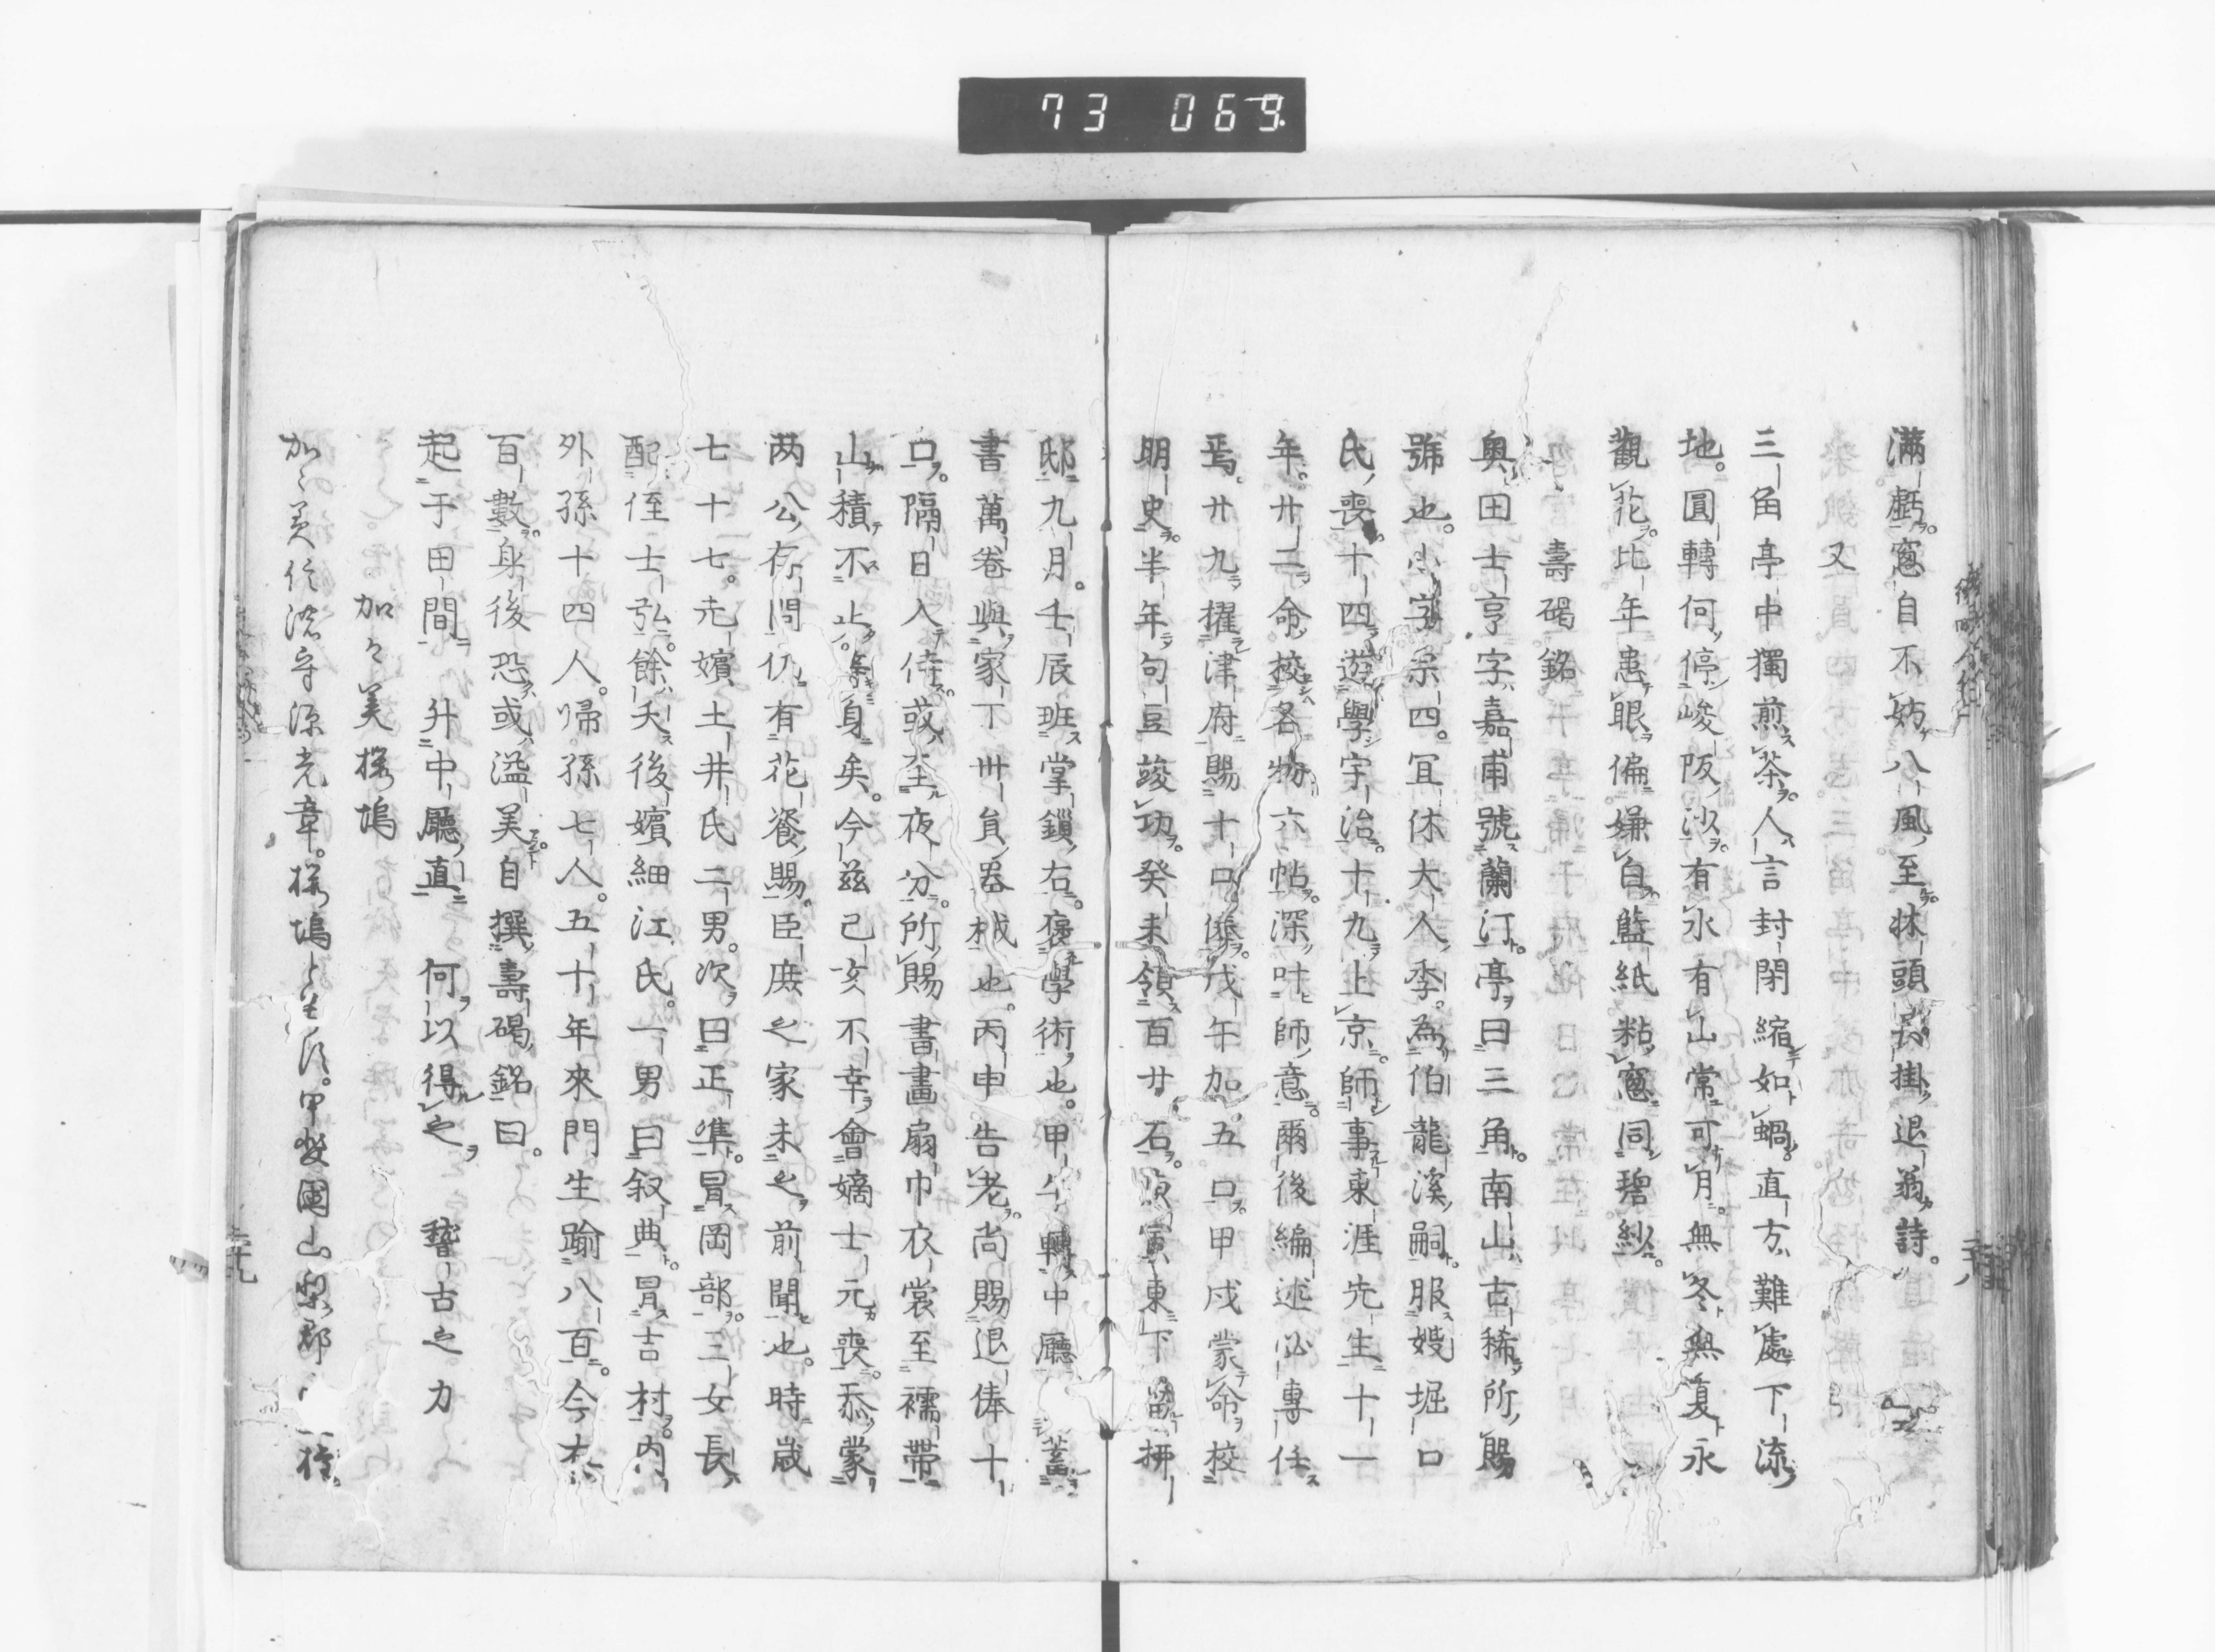 73 069
滿虧窓自不妨八風至牀頭長掛退翁詩
又
三角亭中獨煎茶人言封閉縮如蝸直方難處下流
地圓轉何停峻阪沙有水有山常可月無冬無夏永
觀花比年患眼偏嫌白藍紙粘窓同碧紗
壽碣銘
奧田士亨字嘉甫號蘭汀亭曰三角南山古稀所賜
號也小字宗四冝休大人季為伯龍溪嗣服嫂堀口
氏喪十四遊學宇治十九上京師事東涯先生十一
年廿二命校名物六帖深叶師意爾後編述必專任
焉廿九擢津府賜十口俸戊午加五口甲戌蒙命校
明史半年句豆竣功癸未領百廿石庚寅東下留柳
邸九月壬辰班掌鎖右褒學術也甲午轉中廳蓄
書萬卷與家丁丗負器械也丙申告老尚賜退俸十
口隔日入侍或至夜分所賜書畫扇巾衣裳至襦帶
山積不止身矣今茲己亥不幸會嫡士元喪忝蒙
两公存問仍有花餈賜臣庶之家未之前聞也時歳
七十七先嬪土井氏二男次曰正準冒岡部三女長
配侄士弘餘夭後嬪細江氏一男曰叙典冒吉村内
外孫十四人帰孫七人五十年來門生踰八百今
百數身後恐或溢美自撰壽碣銘曰
起于田間　升中廳直　何以得之　稽古之力
加々美櫻塢
加々美信濃守源光章櫻塢と号す甲斐國山梨郡